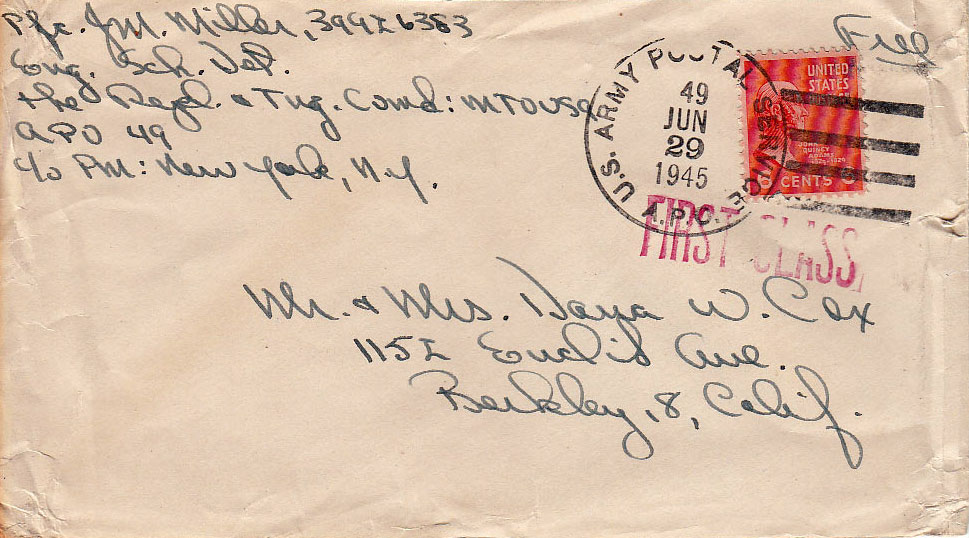 Pfc. J.M. Miller, 39926383
Eng. Sch. Det.
the Repl. & Tng. Comd: MTOUSA
APO 49
c/o PM: New York, N.Y.
Free
U.S. ARMY POSTAL SERVICE
49
JUN
29
1945
A.P.O.
UNITED
STATES
JOHN
QUINCY
ADAMS
1825-1829
6 CENTS 6
FIRST CLASS
Mr. & Mrs. Dana W. Cox
1152 Euclid Ave.
Berkley, 8, Calif.